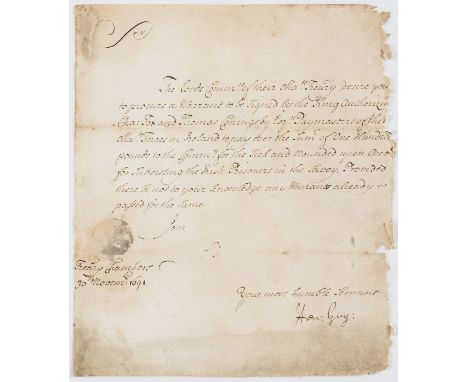 Sr
The Lords Comm.rs of their Ma.ts Treãry desire you
to procure a Warrant to be signed by the King Authorizin
Cha: Fox and Thomas Conigsby Esq.rs Paymasters of their
Ma.ts Forces in Ireland to pay over the Sum of One Hundred
pounds to the Comm.rs for the Sick and Wounded upon Acco.t
for Subsisting the Irish Prisoners in the Savoy, Provided
there be not to your Knowledge any Warrant already
passed for the Same.
I am
Sr.
Treãry Chambers
30th Novem.r 1691
Your most humble Servant
Hen: Guy: